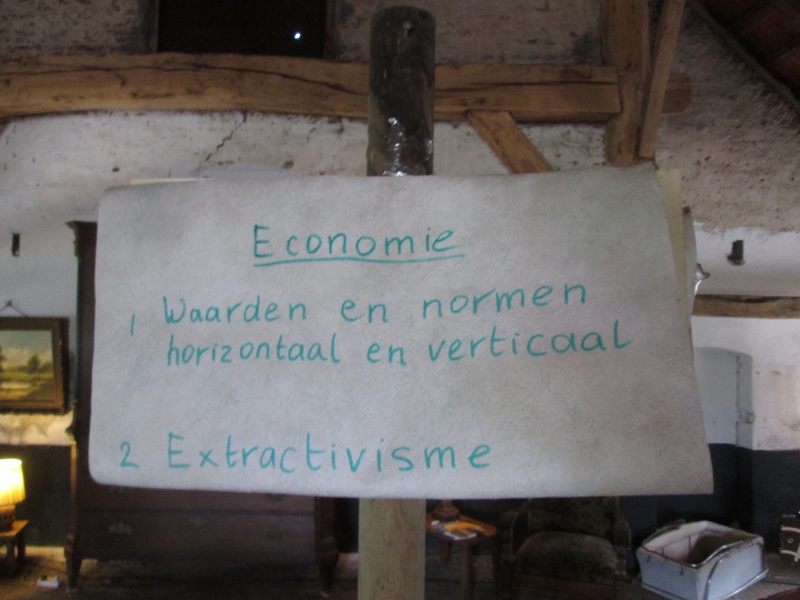 Economie
1 Waarden en normen
horizontaal en verticaal
2 Extractivisme